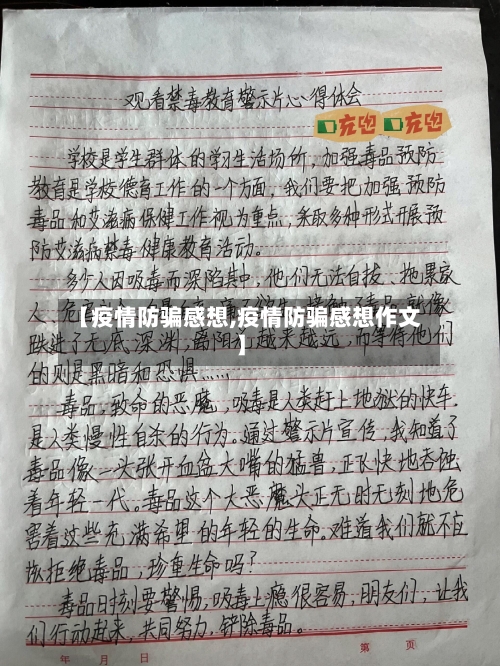 观看禁毒教育警示片心得体会
充电 充电
学校是学生群体的学习生活场所,加强毒品预防
教育是学校德育工作的一个方面,我们要把加强预防
毒品和艾滋病保健工作视为重点,采取多种形式开展预
防艾滋病禁毒健康教育活动。
多少人因吸毒而深陷其中,他们无法自拔,拖累家
人
【疫情防骗感想,疫情防骗感想作文
】
跌进了无底深渊,离阳光越来越远,而等待他们
的则是黑暗和恐惧……
毒品,致命的恶魔,吸毒是人类赶上地狱的快车,
是人类慢性自杀的行为。通过警示片宣传,我知道了
毒品像一头张开血盆大嘴的猛兽,正飞快地吞蚀
着年轻一代。毒品这个大恶魔头正无时无刻地危
害着这些充满希望的年轻的生命。难道我们就不应
该拒绝毒品,珍重生命吗?
毒品时刻要警惕,吸毒上瘾很容易,朋友们,让我
们行动起来,共同努力,铲除毒品。
年 月 日 第 页